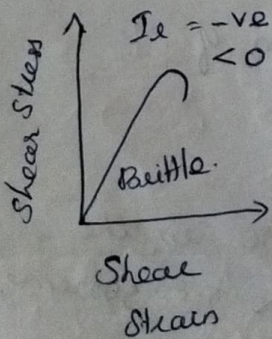 Iₗ = -ve
< 0
Shear Stress
Brittle.
Shear
Strain